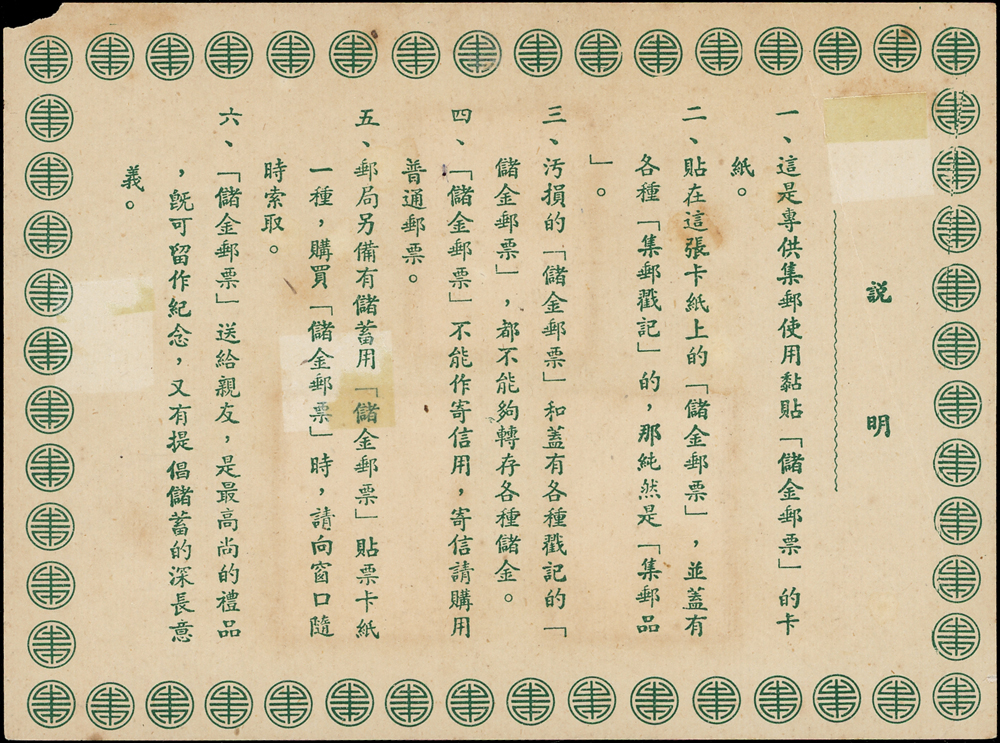 說明
一、這是專供集郵使用黏貼「儲金郵票」的卡
紙。
二、貼在這張卡紙上的「儲金郵票」，並蓋有
各種「集郵戳記」的，那純然是「集郵品
」。
三、污損的「儲金郵票」和蓋有各種戳記的「
儲金郵票」，都不能夠轉存各種儲金。
四、「儲金郵票」不能作寄信用，寄信請購用
普通郵票。
五、郵局另備有儲蓄用「儲金郵票」貼票卡紙
一種，購買「儲金郵票」時，請向窗口隨
時索取。
六、「儲金郵票」送給親友，是最高尚的禮品
，既可留作紀念，又有提倡儲蓄的深長意
義。